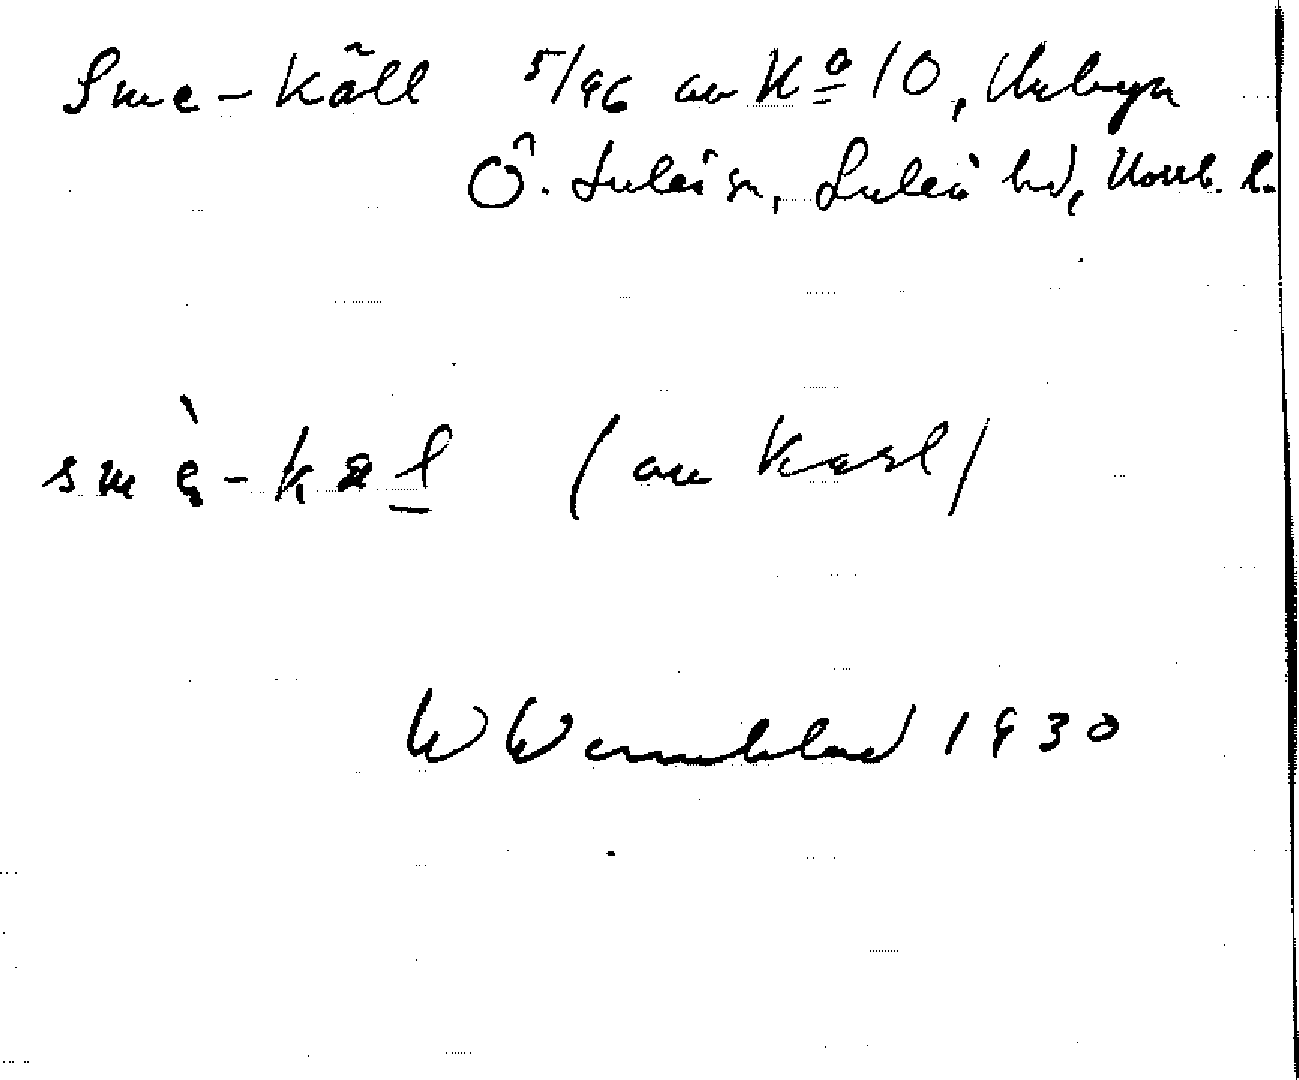 Sme-Käll 5/96 av Kº 10, Unbyn
Ö. Luleå sn, Luleå hd, Norrb. l.
smè̩-käl (av Karl)
W Wennblad 1930